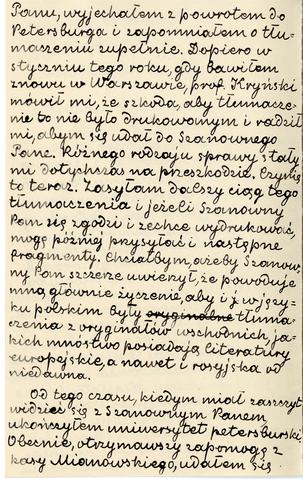 Panu, wyjechałem z powrotem do
Petersburga i zapomniałem o tłu-
maczeniu zupełnie. Dopiero w
styczniu tego roku, gdy bawiłem
znowu w Warszawie, prof. Kryński
mówił mi, że szkoda, aby tłumacze-
nie to nie było drukowanym i radził
mi, abym się udał do Szanownego
Pana. Różnego rodzaju sprawy stały
mi dotychczas na przeszkodzie. Czynię
to teraz. Zasyłam dalszy ciąg tego
tłumaczenia i jeżeli Szanowny
Pan się zgodzi i zechce wydrukować,
mogę później przysyłać i następne
fragmenty. Chciałbym, ażeby Szanow-
ny Pan szczerze uwierzył, że powoduje
mną głównie życzenie, aby i w języ-
ku polskim były oryginalne tłuma-
czenia z oryginałów wschodnich, ja-
kich mnóstwo posiadają literatury
europejskie, a nawet i rosyjska od
niedawna.
Od tego czasu, kiedym miał zaszczyt
widzieć się z Szanownym Panem,
ukończyłem uniwersytet petersburski.
Obecnie, otrzymawszy zapomogę z
kasy Mianowskiego, udałem się